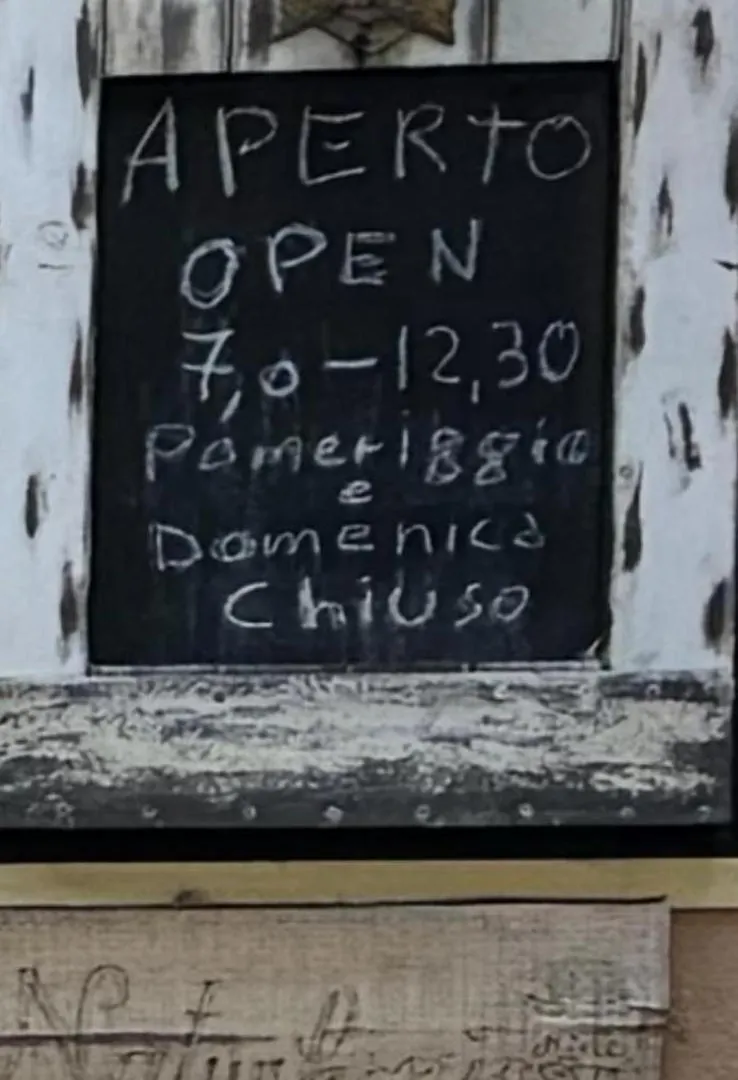 APERTO
OPEN
7,0-12,30
Pomeriggio
e
Domenica
Chiuso